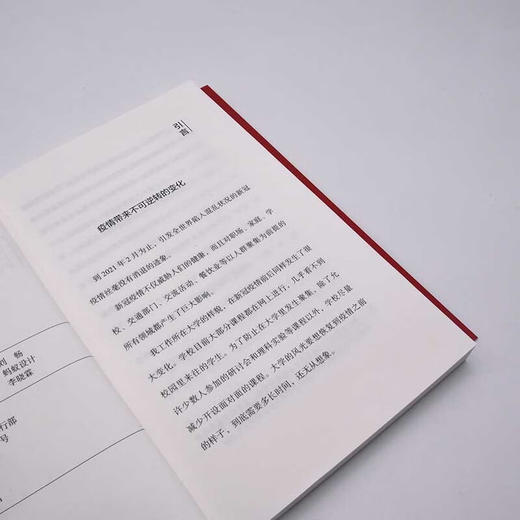 刘 畅
蚂蚁设计
李晓霖
行部
号
引言
疫情带来不可逆转的变化
到2021年2月为止，引发全世界陷入混乱状况的新冠
疫情丝毫没有消退的迹象。
新冠疫情不仅威胁人们的健康，而且对职场、家庭、学
校、交通部门、交流活动、餐饮业等以人群聚集为前提的
所有领域都产生了巨大影响。
我工作所在大学的样貌，在新冠疫情前后同样发生了很
大变化。学校目前大部分课程都在网上进行，几乎看不到
校园里来往的学生。为了防止在大学里发生聚集，除了允
许少数人参加的研讨会和理科实验等课程以外，学校尽量
减少开设面对面的课程。大学的风光要想恢复到疫情之前
的样子，到底需要多长时间，还无从想象。